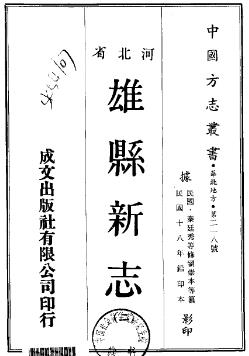 中國方志叢書·華北地方·第二一八號
據民國·秦廷秀等修劉崇本等纂
民國十八年鉛印本 影印
河北省
雄縣新志
成文出版社有限公司印行
(三)